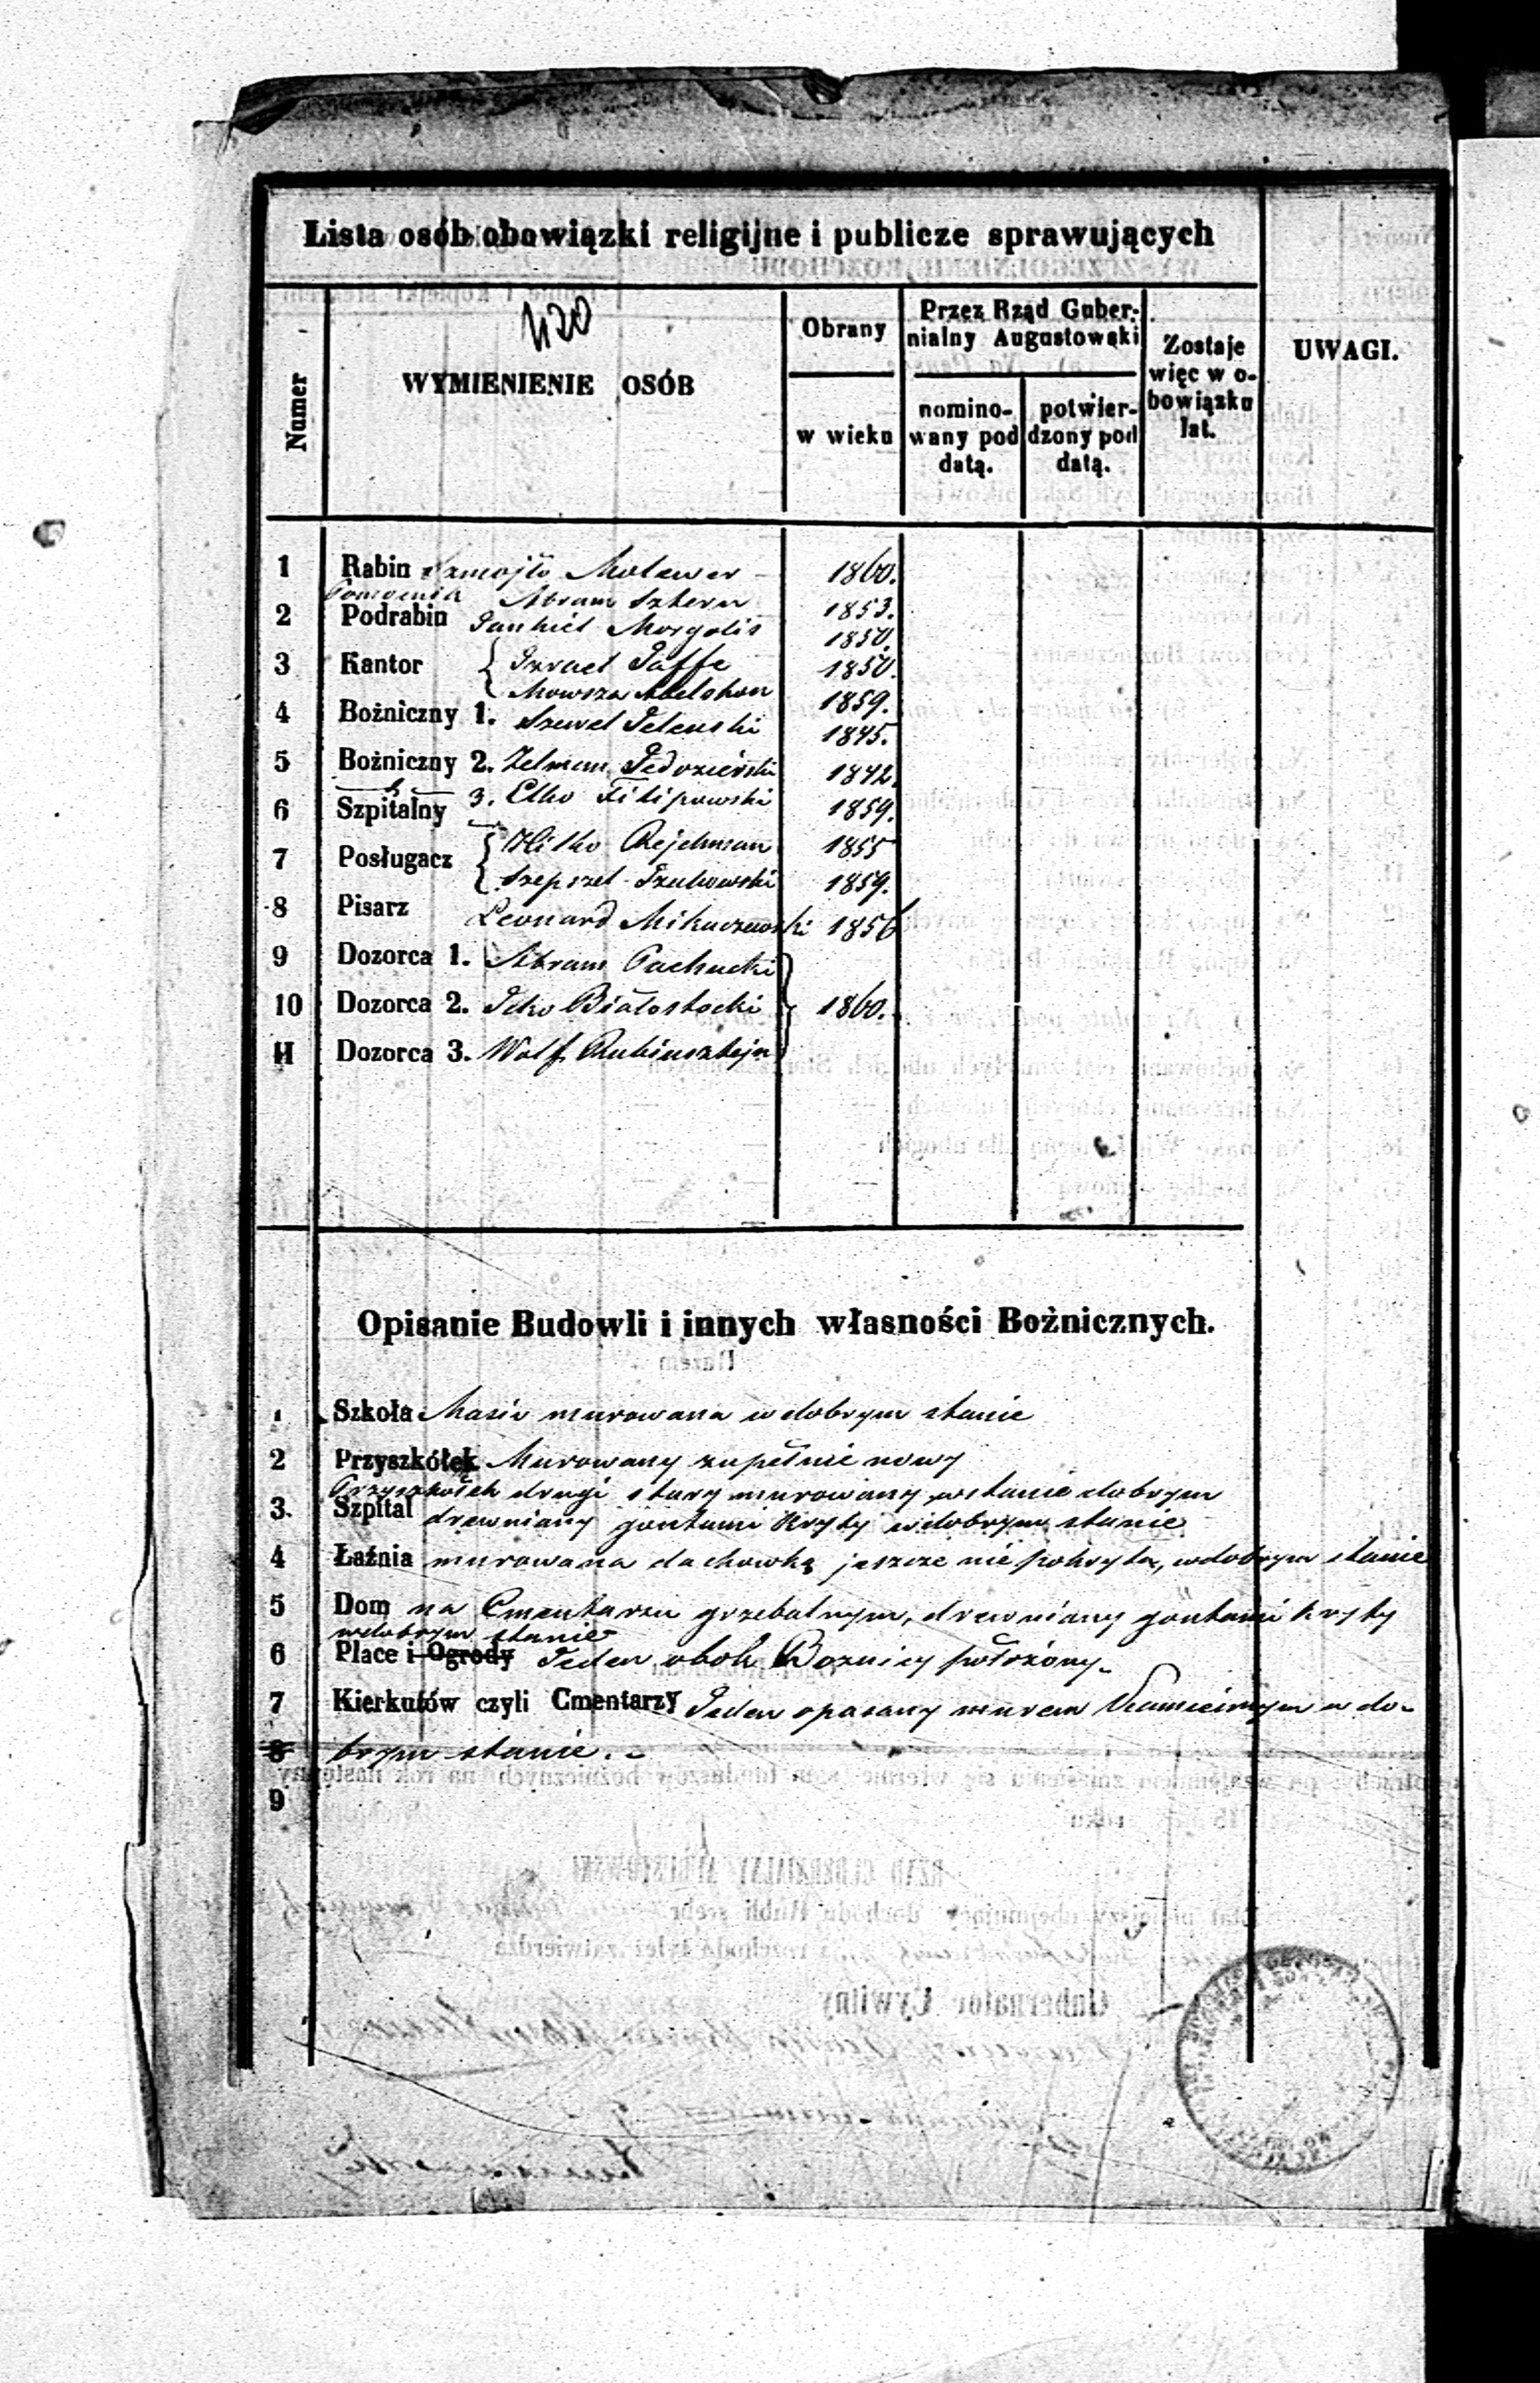 Lista osób obowiązki religijne i publicze sprawujących
420
Numer
WYMIENIENIE OSÓB
Obrany
w wieku
Przez Rząd Guber-
nialny Augustowski
nomino-
wany pod
datą.
potwier-
dzony pod
datą.
Zostaje
więc w o-
bowiązku
lat.
UWAGI.
1 Rabin Szmojło Molawer 1860.
Abram Sztern 1853.
2 Podrabin Jankiel Morgolis 1850.
3 Kantor { Izrael Jaffe 1850.
Mowsza 1859.
4 Bożniczny 1. Szewel 1845.
5 Bożniczny 2. Zelman 1842.
3. Elko Filipowski 1859.
6 Szpitalny
7 Posługacz { Hilko Rejchman 1855
Szepszel 1859.
8 Pisarz Leonard 1856
9 Dozorca 1. Abram Pachucki
10 Dozorca 2. Icko Białostocki } 1860.
11 Dozorca 3. Wolf Rubinsztejn
Opisanie Budowli i innych własności Bożnicznych.
1 Szkoła Masiv murowana w dobrym stanie
2 Przyszkółek Murowany zupełnie nowy
Przyszkółek drugi stary murowany w stanie dobrym
3. Szpital drewniany gontami kryty w dobrym stanie
4 Łaźnia murowana dachowką jeszcze nie pokryta, w dobrym stanie
5 Dom na Cmentarzu grzebalnym, drewniany gontami kryty
w dobrym stanie
6 Place i Ogrody Jeden obok Boznicy położony.
7 Kierkutów czyli Cmentarzy Jeden opasany murem Kamiennym w do-
8 brym stanie.
9